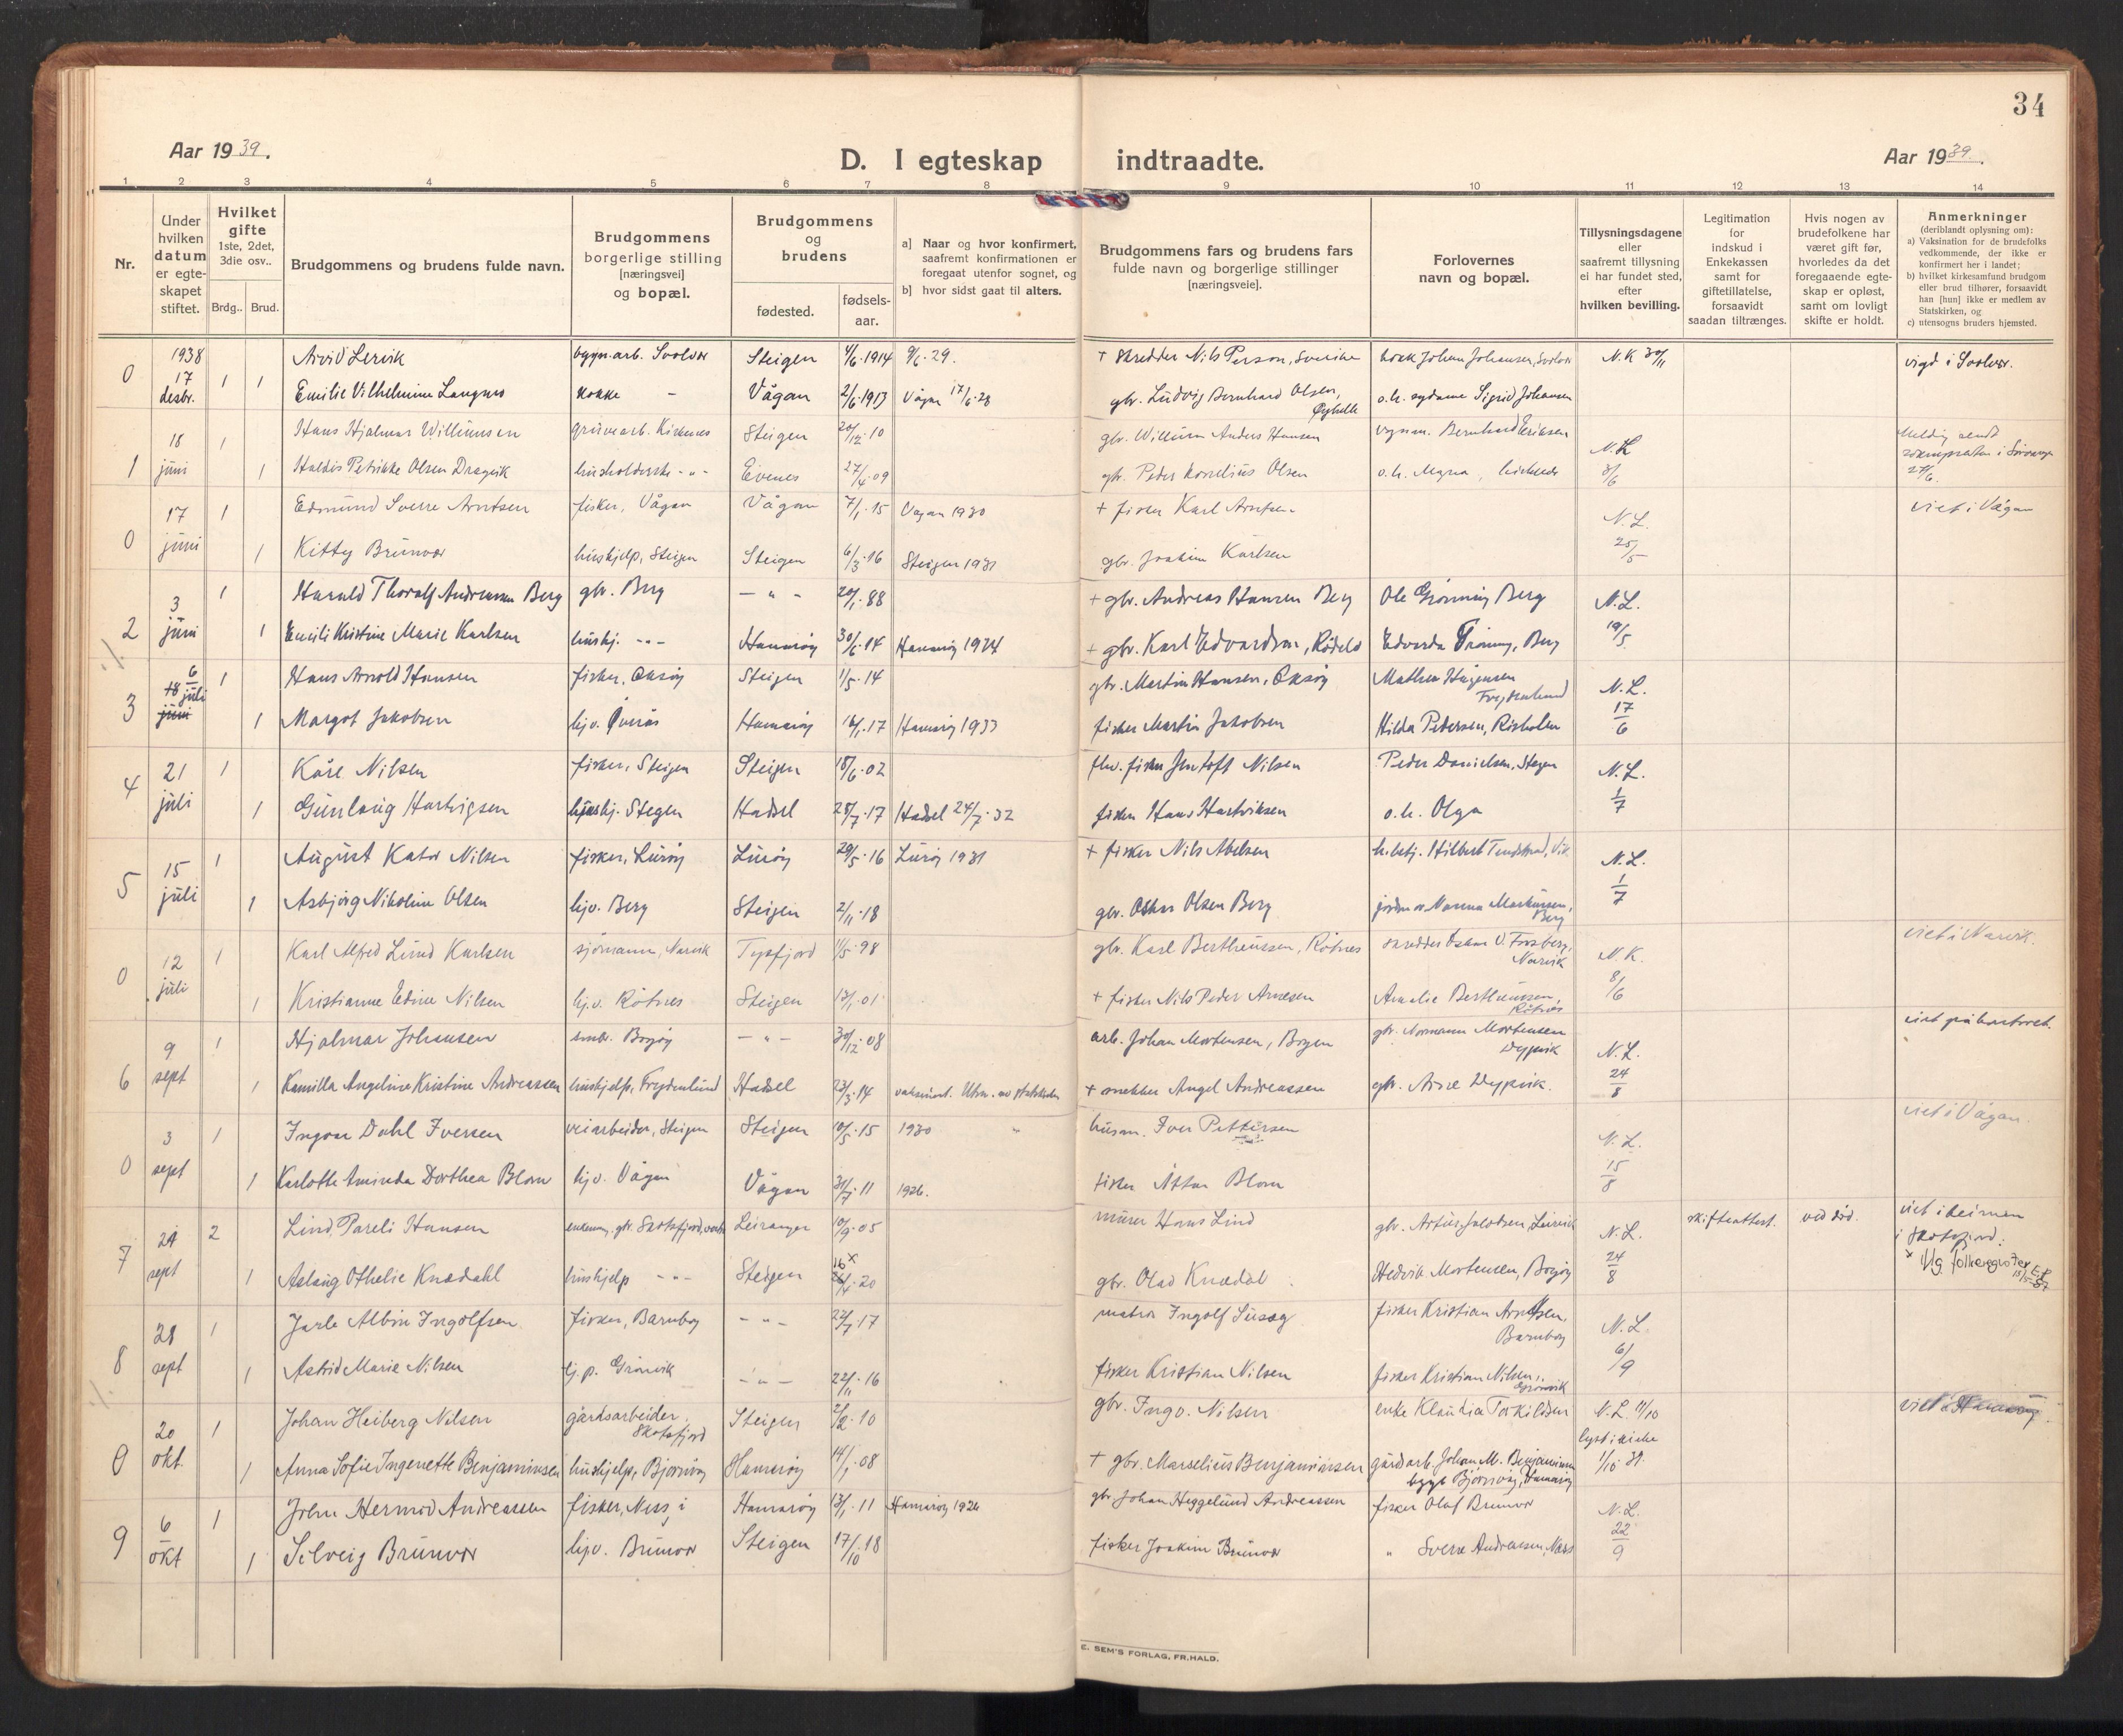 34
Aar 1939.
D. I egteskap indtraadte.
Aar 1939.
1 2 3 4 5 6 7 8 9 10 11 12 13 14
Nr.
Under hvilken datum er egte-skapet stiftet.
Hvilket gifte 1ste, 2det, 3die osv..
Brdg.. Brud.
Brudgommens og brudens fulde navn.
Brudgommens borgerlige stilling [næringsvei] og bopæl.
Brudgommens og brudens
fødested.
fødsels-aar.
a] Naar og hvor konfirmert, saafremt konfirmationen er foregaat utenfor sognet, og
b] hvor sidst gaat til alters.
Brudgommens fars og brudens fars fulde navn og borgerlige stillinger [næringsveie].
Forlovernes navn og bopæl.
Tillysningsdagene eller saafremt tillysning ei har fundet sted, efter hvilken bevilling.
Legitimation for indskud i Enkekassen samt for giftetillatelse, forsaavidt saadan tiltrænges.
Hvis nogen av brudefolkene har været gift før, hvorledes da det foregaaende egte-skap er opløst, samt om lovligt skifte er holdt.
Anmerkninger (deriblandt oplysning om):
a) Vaksination for de brudefolks vedkommende, der ikke er konfirmert her i landet;
b) hvilket kirkesamfund brudgom eller brud tilhører, forsaavidt han [hun] ikke er medlem av Statskirken, og
c) utensogns bruders hjemsted.
0 1938 17 desbr. 1 Arvid Lervik Svolvær Steigen 4/6.1914 9/6.29. + skredder Nils Person, Sverige Johan Johansen, Svolvær N.K 30/11 vigd i Svolvær.
1 Emilie Vilhelmine Langnes kokke - Vågan 2/6.1913 Vågan 17/6.28 gbr. Ludvig Bernhard Olsen, o.h. Sigrid Johansen
1 18 juni 1 Hans Hjalmar Willumsen gruvearb. Kirkenes Steigen 20/12.10 gbr. Willum Anders Hansen Bernhard Eriksen N.L 3/6
1 Haldis Petrikke Olsen Dragvik husholderske -"- Evenes 27/4.09 gbr. Peder Kornelius Olsen o.h. Magna
0 17 juni 1 Edmund Sverre Arntsen fisker, Vågan Vågan 7/1.15 Vågan 1930 + fisker Karl Arntsen N.L. 25/5 viet i Vågan
1 Kitty Brunvær hushjelp, Steigen Steigen 6/3.16 Steigen 1931 gbr. Joakim Karlsen
2 3 juni 1 Harald Thoralf Andreassen Berg gbr. Berg -"- 20/1.88 + gbr. Andreas Hansen Berg Ole Grönning Berg N.L. 19/5
1 Emili Kristine Marie Karlsen hushj. -"- Hamarøy 30/6.14 Hamarøy 1924 + gbr. Karl Edvardsen, Edvarda Gröning, Berg
3 6 juli 1 Hans Arnold Hansen fisker, Oksöy Steigen 1/5.14 gbr. Martin Hansen, Oksöy Mathea Frydenlund N.L. 17/6
1 Margot Jakobsen hjv. Hamarøy 16/1.17 Hamaröy 1933 fisker Martin Jakobsen Hilda Pedersen, Risholm
4 21 juli 1 Kåre Nilsen fisker, Steigen Steigen 18/6.02 fhv. fisker Nilsen Peder Danielsen, Steigen N.L. 1/7
1 Gunlaug Hartvigsen hushj. Steigen Hadsel 28/7.17 Hadsel 24/7.32 fisker Hans Hartviksen o.h. Olga
5 15 juli 1 August Kator Nilsen fisker, Luröy Luröy 29/5.16 Luröy 1931 + fisker Nils Abelsen Hilbert N.L. 1/7
1 Asbjørg Nikoline Olsen hjv. Berg Steigen 2/11.18 gbr. Oskar Olsen Berg Berg
0 12 juli 1 Karl Alfred Lund Karlsen sjömann, Narvik Tysfjord 1/5.98 gbr. Karl Bertheussen, Rötnes skredder Oskar V. Forsberg, Narvik N.K. 8/6 viet i Narvik.
1 Kristianne Edine Nilsen hjv. Rötnes Steigen 13/1.01 + fisker Nils Peder Arnesen Amalie Bertheussen, Rötnes
6 9 sept 1 Hjalmar Johansen Bogøy -"- 30/12.08 arb. Johan Mortensen, Bogen gbr. Normann Mortensen Dypvik N.L. 24/8 viet på kontoret.
1 Kamilla Angeline Kristine Andreassen hushjelp, Frydenlund Hadsel 23/3.14 vaksinert. + snekker Angel Andreassen gbr. Arne Dypvik.
0 3 sept 1 Ingvar Dahl Iversen veiarbeider, Steigen Steigen 10/5.15 1930 husm. Iver Pettersen N.L. 15/8 viet i Vågan.
1 Karlotte Aminda Dorthea Blom hjv. Vågan Vågan 31/7.11 1926. fisker Ottar Blom
7 24 sept 2 Lind Pareli Hansen enkem. gbr. Skotsfjord Leiranger 10/9.05 murer Hans Lind gbr. Artur Jakobsen, Leirvik N.L. 24/8 skifteattest. ved död. viet i heimen i Skotsfjord.
1 Aslaug Othelie Knædahl hushjelp -"- Steigen 16/4.20 gbr. Olad Knædal Hedvik Mortensen, Bogöy x Iflg. folkeregister
8 28 sept 1 Jarle Albin Ingolfsen fisker, Barnboy -"- 22/7.17 Ingolf Susæg fisker Kristian Arntsen, Barnboy N.L. 6/9
1 Astrid Marie Nilsen hj.p. Grönvik -"- 22/11.16 fisker Kristian Nilsen fisker Kristian Nilsen, Grönvik
0 20 okt. 1 Johan Heiberg Nilsen gårdsarbeider, Skotsfjord Steigen 2/2.10 gbr. Ingv. Nilsen enke Klaudia Torkildsen N.L. 11/10 viet i Hamarøy.
1 Anna Sofie Ingenette Benjaminsen hushjelp, Bjørnvåg Hamarøy 14/1.08 + gbr. Marselius Benjaminsen gårdarb. Johan M. Benjaminsen Hamarøy lyst i kirke 1/10 39.
9 6 okt 1 John Hermod Andreassen fisker, Ness i Hamarøy 13/1.11 Hamarøy 1926 gbr Johan Heggelund Andreassen fisker Olaf Brunvær N.L. 22/9
1 Solveig Brunvær hjv. Brunvær Steigen 17/10.18 fisker Joakim Brunvær " Sverre Andreassen, Ness
E. SEM'S FORLAG, FR.HALD.